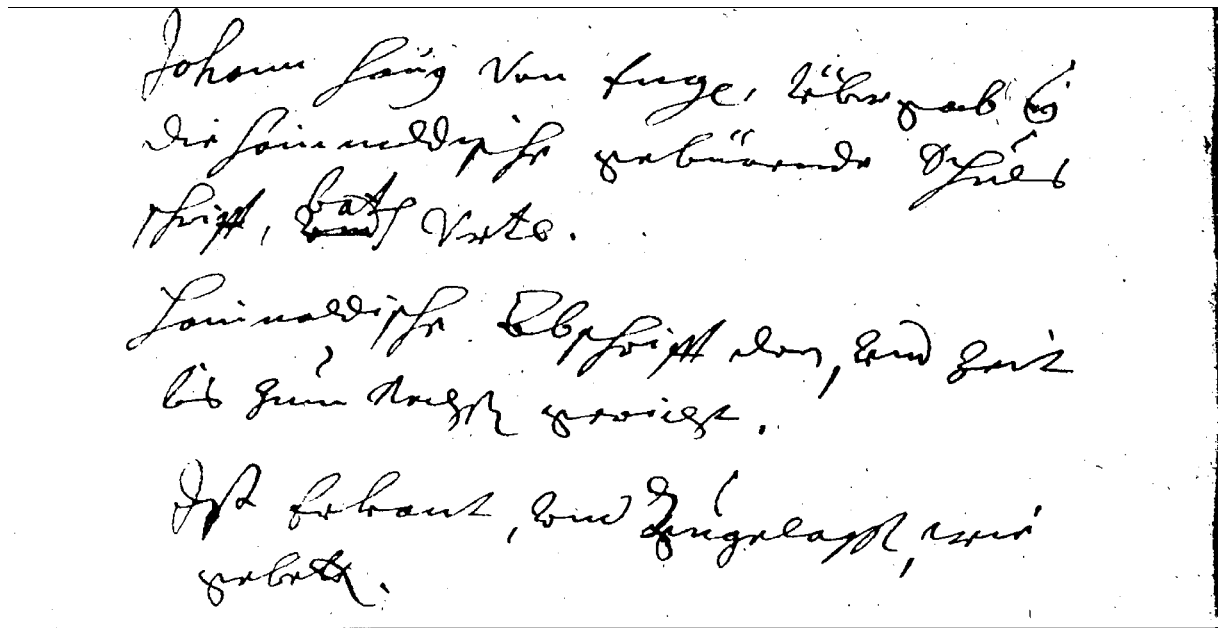 Johann Haug Von Enge, Übergab
die Hainwaldische gebüerende Schuls
schrifft, bat Vrts.
Hainwaldische Abschrifft dar, vnd Zeit
bis zum Rechst gericht.
Ist Erkant, vnd Zugelassen, wie
gebetten.